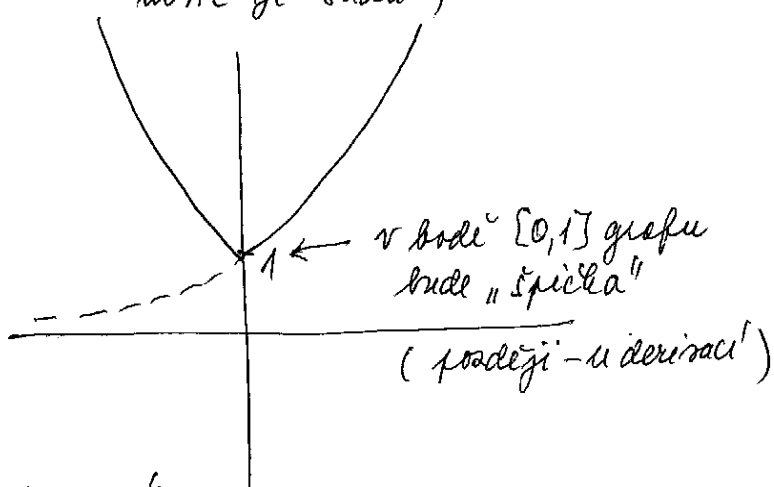 1 ← v bodě [0,1] grafu
bude „špička"
(později – u derivací)